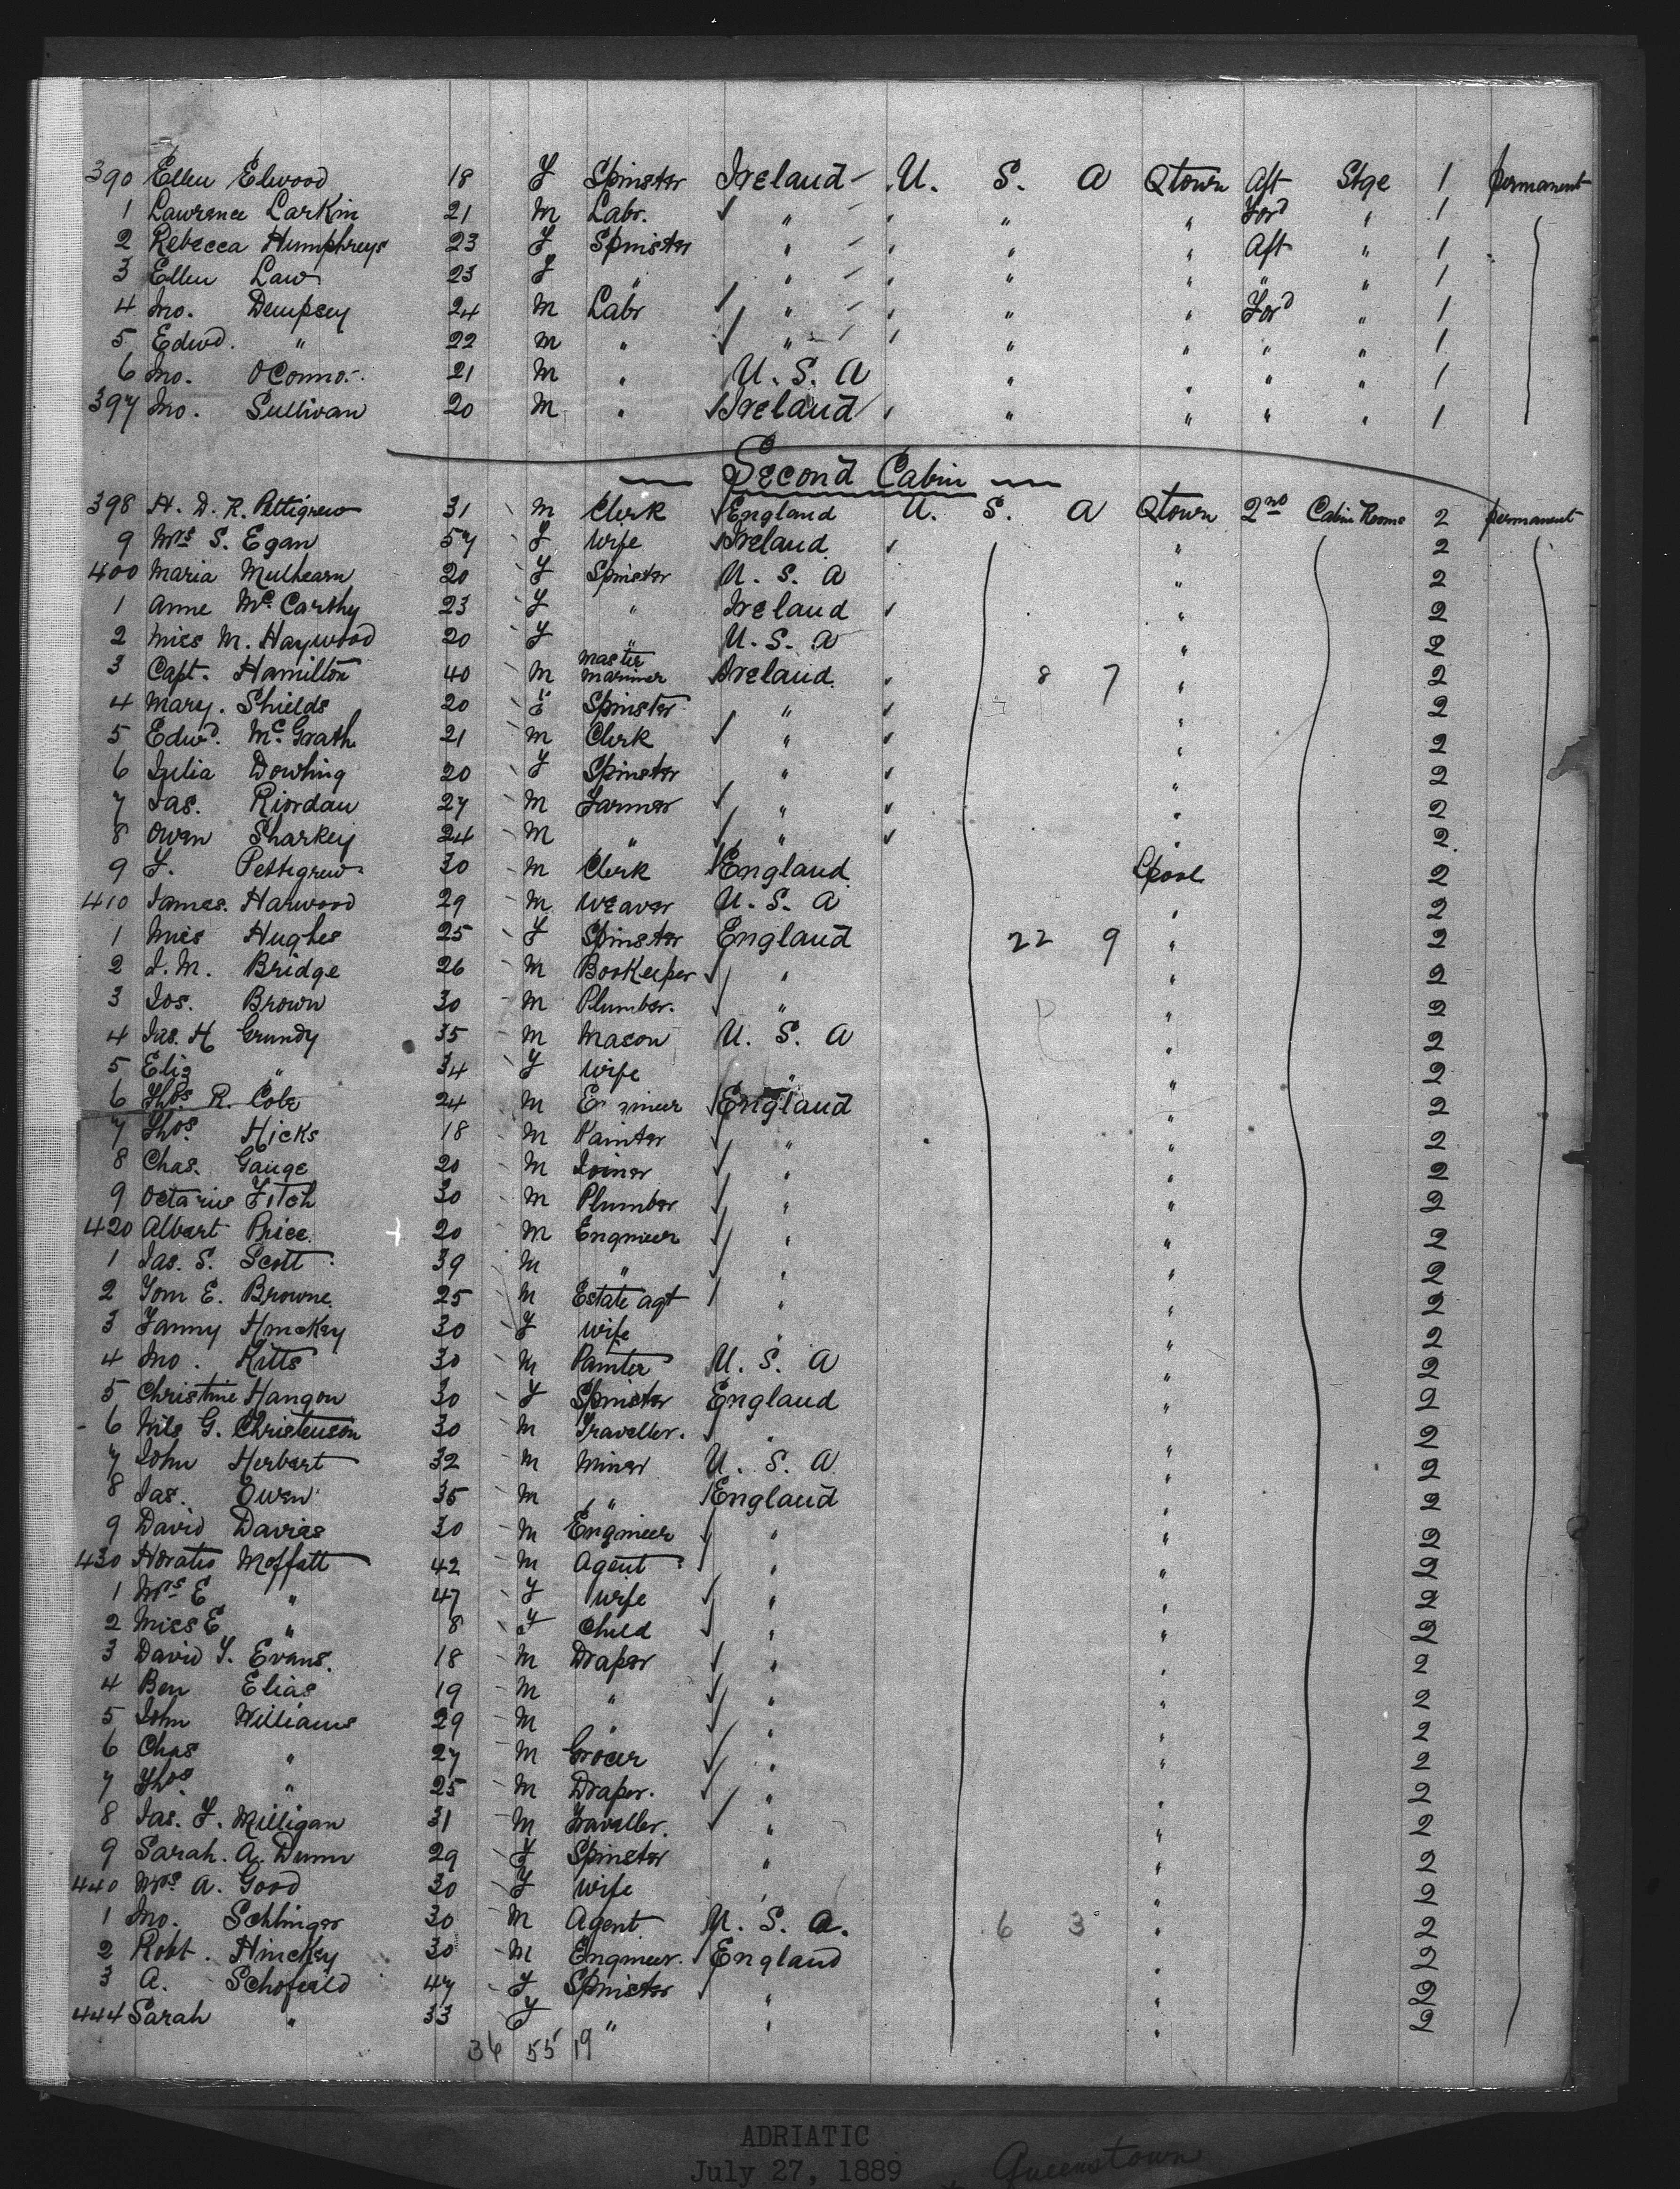 390 Ellen Elwood 18 F Spinster Ireland U. S. A Qtown Aft Stge 1 permanent
1 Lawrence Larkin 21 M Labr. " " " Ford " 1
2 Rebecca Humphreys 23 F Spinster " " " Aft " 1
3 Ellen Law 23 F " " " " " " 1
4 Jno. Dempsey 24 M Labr " " " Ford " 1
5 Edwd. " 22 M " " " " " " 1
6 Jno. OConnor 21 M " U. S. A " " " " 1
397 Jno. Sullivan 20 M " Ireland " " " " 1
Second Cabin
398 H. D. R. Pettigrew 31 M Clerk England U. S. A Qtown 2nd Cabin Rooms 2 permanent
9 Mrs S. Egan 57 F Wife Ireland " 2
400 Maria Mulhearn 20 F Spinster U. S. A " 2
1 Anne McCarthy 23 F " Ireland " 2
2 Miss M. Haywood 20 F " U. S. A " 2
3 Capt. Hamilton 40 M Master Mariner Ireland 8 7 " 2
4 Mary. Shields 20 F Spinster " " 2
5 Edwd. McGrath 21 M Clerk " " 2
6 Julia Dowling 20 F Spinster " " 2
7 Jas. Riordan 27 M Farmer " " 2
8 Owen Sharkey 24 M " " " 2
9 F. Pettigrew 30 M Clerk England Lpool 2
410 James. Harwood 29 M Weaver U. S. A " 2
1 Miss Hughes 25 F Spinster England 22 9 " 2
2 J. M. Bridge 26 M Bookeeper " " 2
3 Jos. Brown 30 M Plumber. " " 2
4 Jas. H Grundy 35 M Mason U. S. A " 2
5 Eliz " 34 F Wife " " 2
6 Thos. R. Cole 24 M Engineer England " 2
7 Thos. Hicks 18 M Painter " " 2
8 Chas. Gauge 20 M Joiner " " 2
9 Octavius Fitch 30 M Plumber " " 2
420 Albert Price. 20 M Engineer " " 2
1 Jas. S. Scott 39 M " " " 2
2 Tom E. Browne. 25 M Estate agt " " 2
3 Fanny Hinckey 30 F Wife " " 2
4 Jno. Kitts 30 M Painter U. S. A " 2
5 Christine Hangon 30 F Spinster England " 2
6 Nils G. Christenson 30 M Traveller. " " 2
7 John Herbert 32 M Miner U. S. A " 2
8 Jas. Owen 35 M " England " 2
9 David Davies 30 M Engineer " " 2
430 Horatio Moffatt 42 M Agent " " 2
1 Mrs E " 47 F Wife " " 2
2 Miss E " 8 F Child " " 2
3 David T. Evans. 18 M Draper " " 2
4 Ben Elias 19 M " " " 2
5 John Williams 29 M " " " 2
6 Chas " 27 M Grocer " " 2
7 Thos. " 25 M Draper. " " 2
8 Jas. F. Milligan 31 M Traveller. " " 2
9 Sarah. A. Dunn 29 F Spinster " " 2
440 Mrs A. Good 30 F Wife " " 2
1 Jno. Schlinger 30 M Agent U. S. A. 6 3 " 2
2 Robt. Hinckey 30 M Engineer. England " 2
3 A. Schofield 47 F Spinster " " 2
444 Sarah " 33 F " " " 2
36 55 19
ADRIATIC
July 27, 1889
Queenstown